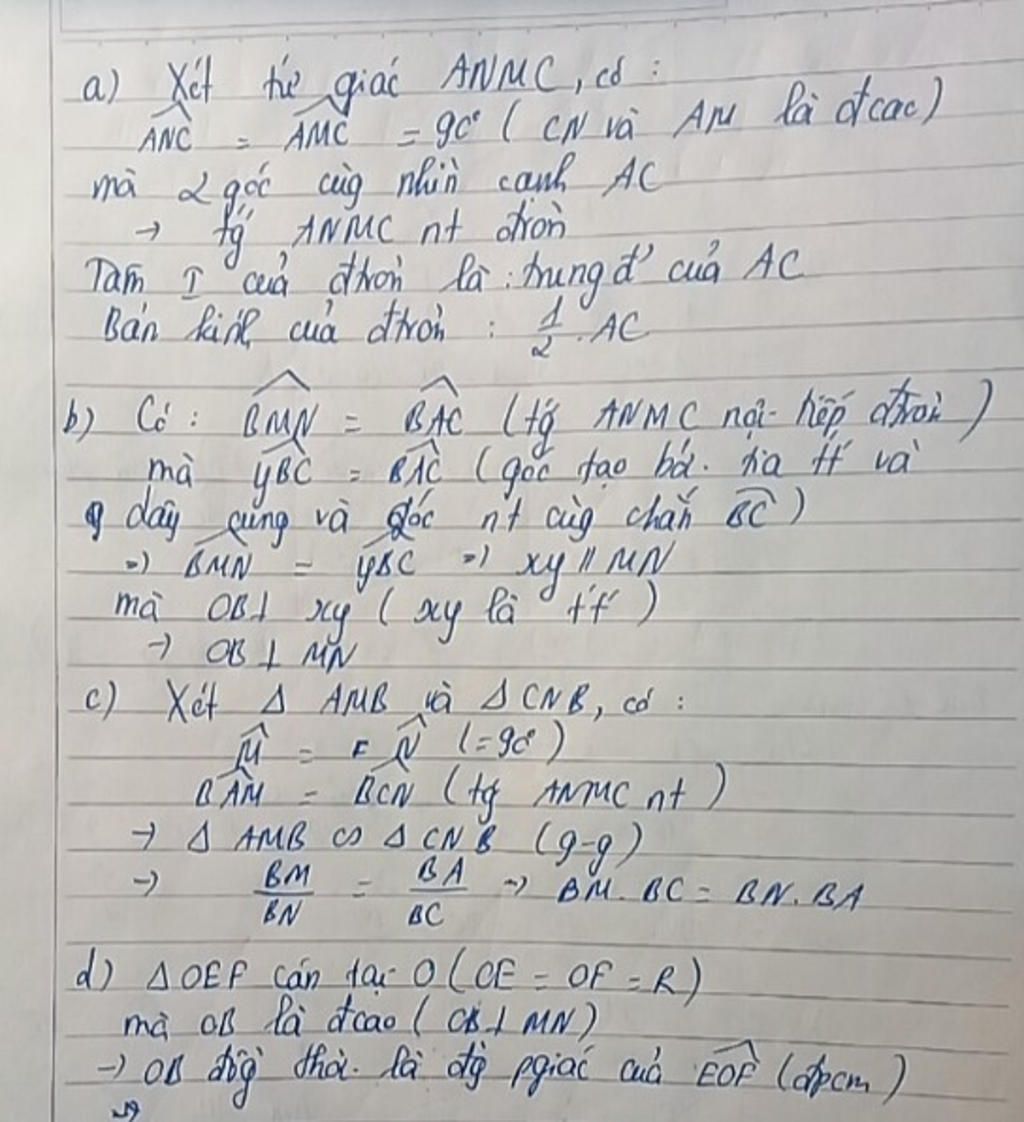 a) Xét tứ giác ANMC, có :
ANC = AMC = 90° ( CN và AM là đcao)
mà 2 góc cùg nhìn cạnh AC
→ tg ANMC nt đtròn
Tâm I của đtròn là : trung đ' của AC
Bán kính của đtròn : 1/2 . AC
b) Có : BMN = BAC (tg ANMC nội tiếp đtròn )
mà yBC = BAC (góc tạo bởi tia tt và
dây cung và góc nt cùg chắn BC )
=> BMN = yBC => xy // MN
mà OB⊥ xy ( xy là tt )
→ OB ⊥ MN
c) Xét Δ AMB và Δ CNB, có :
M = N (=90°)
BAM = BCN (tg ANMC nt )
→ Δ AMB ∽ Δ CNB (g-g)
→ BM/BN = BA/BC → BM. BC = BN. BA
d) ΔOEF cân tại O (OE = OF = R)
mà OB là đcao ( OB⊥ MN)
→ OB đồg thời là đg pgiác của EOF (đpcm )